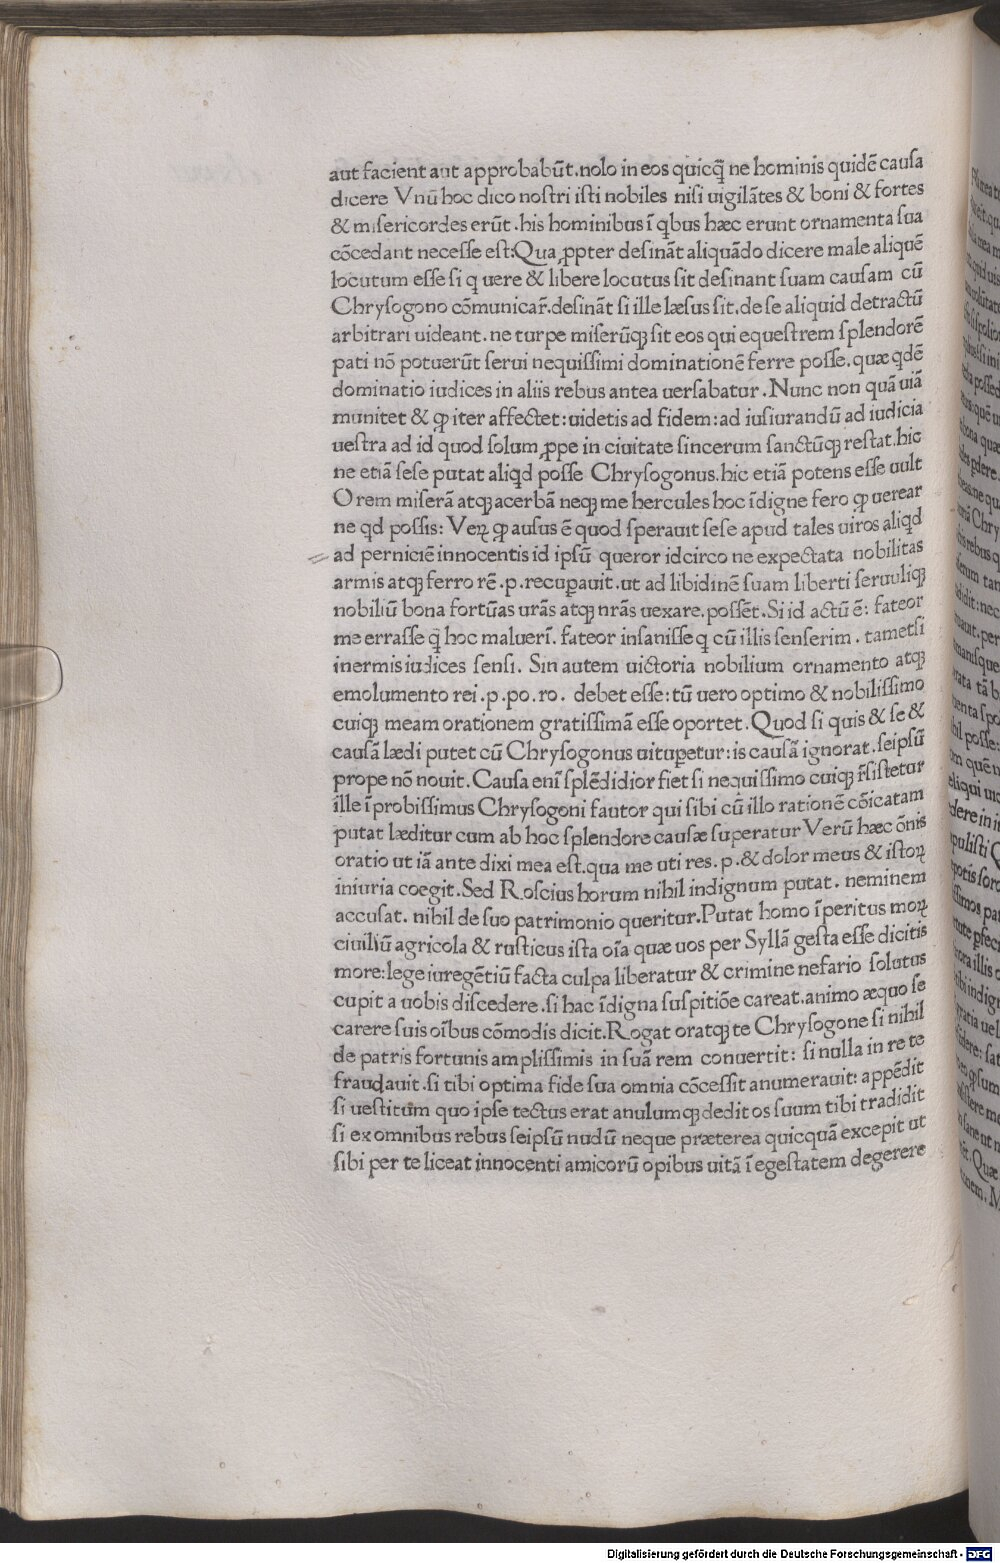 aut facient aut approbabūt.nolo in eos quicq̄ ne hominis quidē causa
dicere Vnū hoc dico nostri isti nobiles nisi uigilātes & boni & fortes
& misericordes erūt.his hominibus ī qbus hæc erunt ornamenta sua
cōcedant necesse est:Qua ꝓpter desināt aliquādo dicere male aliquē
locutum esse si q uere & libere locutus sit desinant suam causam cū
Chrysogono cōmunicar̄.desināt si ille læsus sit.de se aliquid detractū
arbitrari uideant.ne turpe miserūqꝫ sit eos qui equestrem splendorē
pati nō potuerūt serui nequissimi dominationē ferre posse.quæ qdē
dominatio iudices in aliis rebus antea uersabatur.Nunc non quā uiā
munitet & ꝙ iter affectet:uidetis ad fidem:ad iusiurandū ad iudicia
uestra ad id quod solum ꝓpe in ciuitate sincerum sanctūqꝫ restat.hic
ne etiā sese putat aliqd posse Chrysogonus.hic etiā potens esse uult
O rem miserā atqꝫ acerbā neqꝫ me hercules hoc īdigne fero ꝙ uerear
ne qd possis: Veꝝ ꝙ ausus ē quod sperauit sese apud tales uiros aliqd
ad perniciē innocentis id ipsū queror idcirco ne expectata nobilitas
armis atqꝫ ferro rē.p.recuꝑauit.ut ad libidinē suam liberti seruuliqꝫ
nobiliū bona fortūas urās atqꝫ nrās uexare.possēt.Si id actū ē: fateor
me errasse q̄ hoc maluerī. fateor insanisse q cū illis senserim. tametsi
inermis iudices sensi. Sin autem uictoria nobilium ornamento atqꝫ
emolumento rei.p.po.ro. debet esse:tū uero optimo & nobilissimo
cuiqꝫ meam orationem gratissimā esse oportet.Quod si quis & se &
causā lædi putet cū Chrysogonus uituꝑetur:is causā ignorat.seipsū
prope nō nouit.Causa enī splēdidior fiet si nequissimo cuiqꝫ r̄sistetur
ille īprobissimus Chrysogoni fautor qui sibi cū illo rationē cōicatam
putat læditur cum ab hoc splendore causæ superatur Verū hæc ōnis
oratio ut iā ante dixi mea est.qua me uti res.p.& dolor meus & istoꝝ
iniuria coegit.Sed Roscius horum nihil indignum putat. neminem
accusat. nihil de suo patrimonio queritur.Putat homo īperitus moꝝ
ciuiliū agricola & rusticus ista oīa quæ uos per Syllā gesta esse dicitis
more:lege iuregētiū facta culpa liberatur & crimine nefario solutus
cupit a uobis discedere.si hac īdigna suspitiōe careat.animo æquo se
carere suis oībus cōmodis dicit.Rogat oratqꝫ te Chrysogone si nihil
de patris fortunis amplissimis in suā rem conuertit: si nulla in re te
fraudauit.si tibi optima fide sua omnia cōcessit anumerauit: appēdit
si uestitum quo ipse tectus erat anulumqꝫ dedit os suum tibi tradidit
si ex omnibus rebus seipsū nudū neque præterea quicquā excepit ut
sibi per te liceat innocenti amicorū opibus uitā ī egestatem degerere
Digitalisierung gefördert durch die Deutsche Forschungsgemeinschaft - DFG